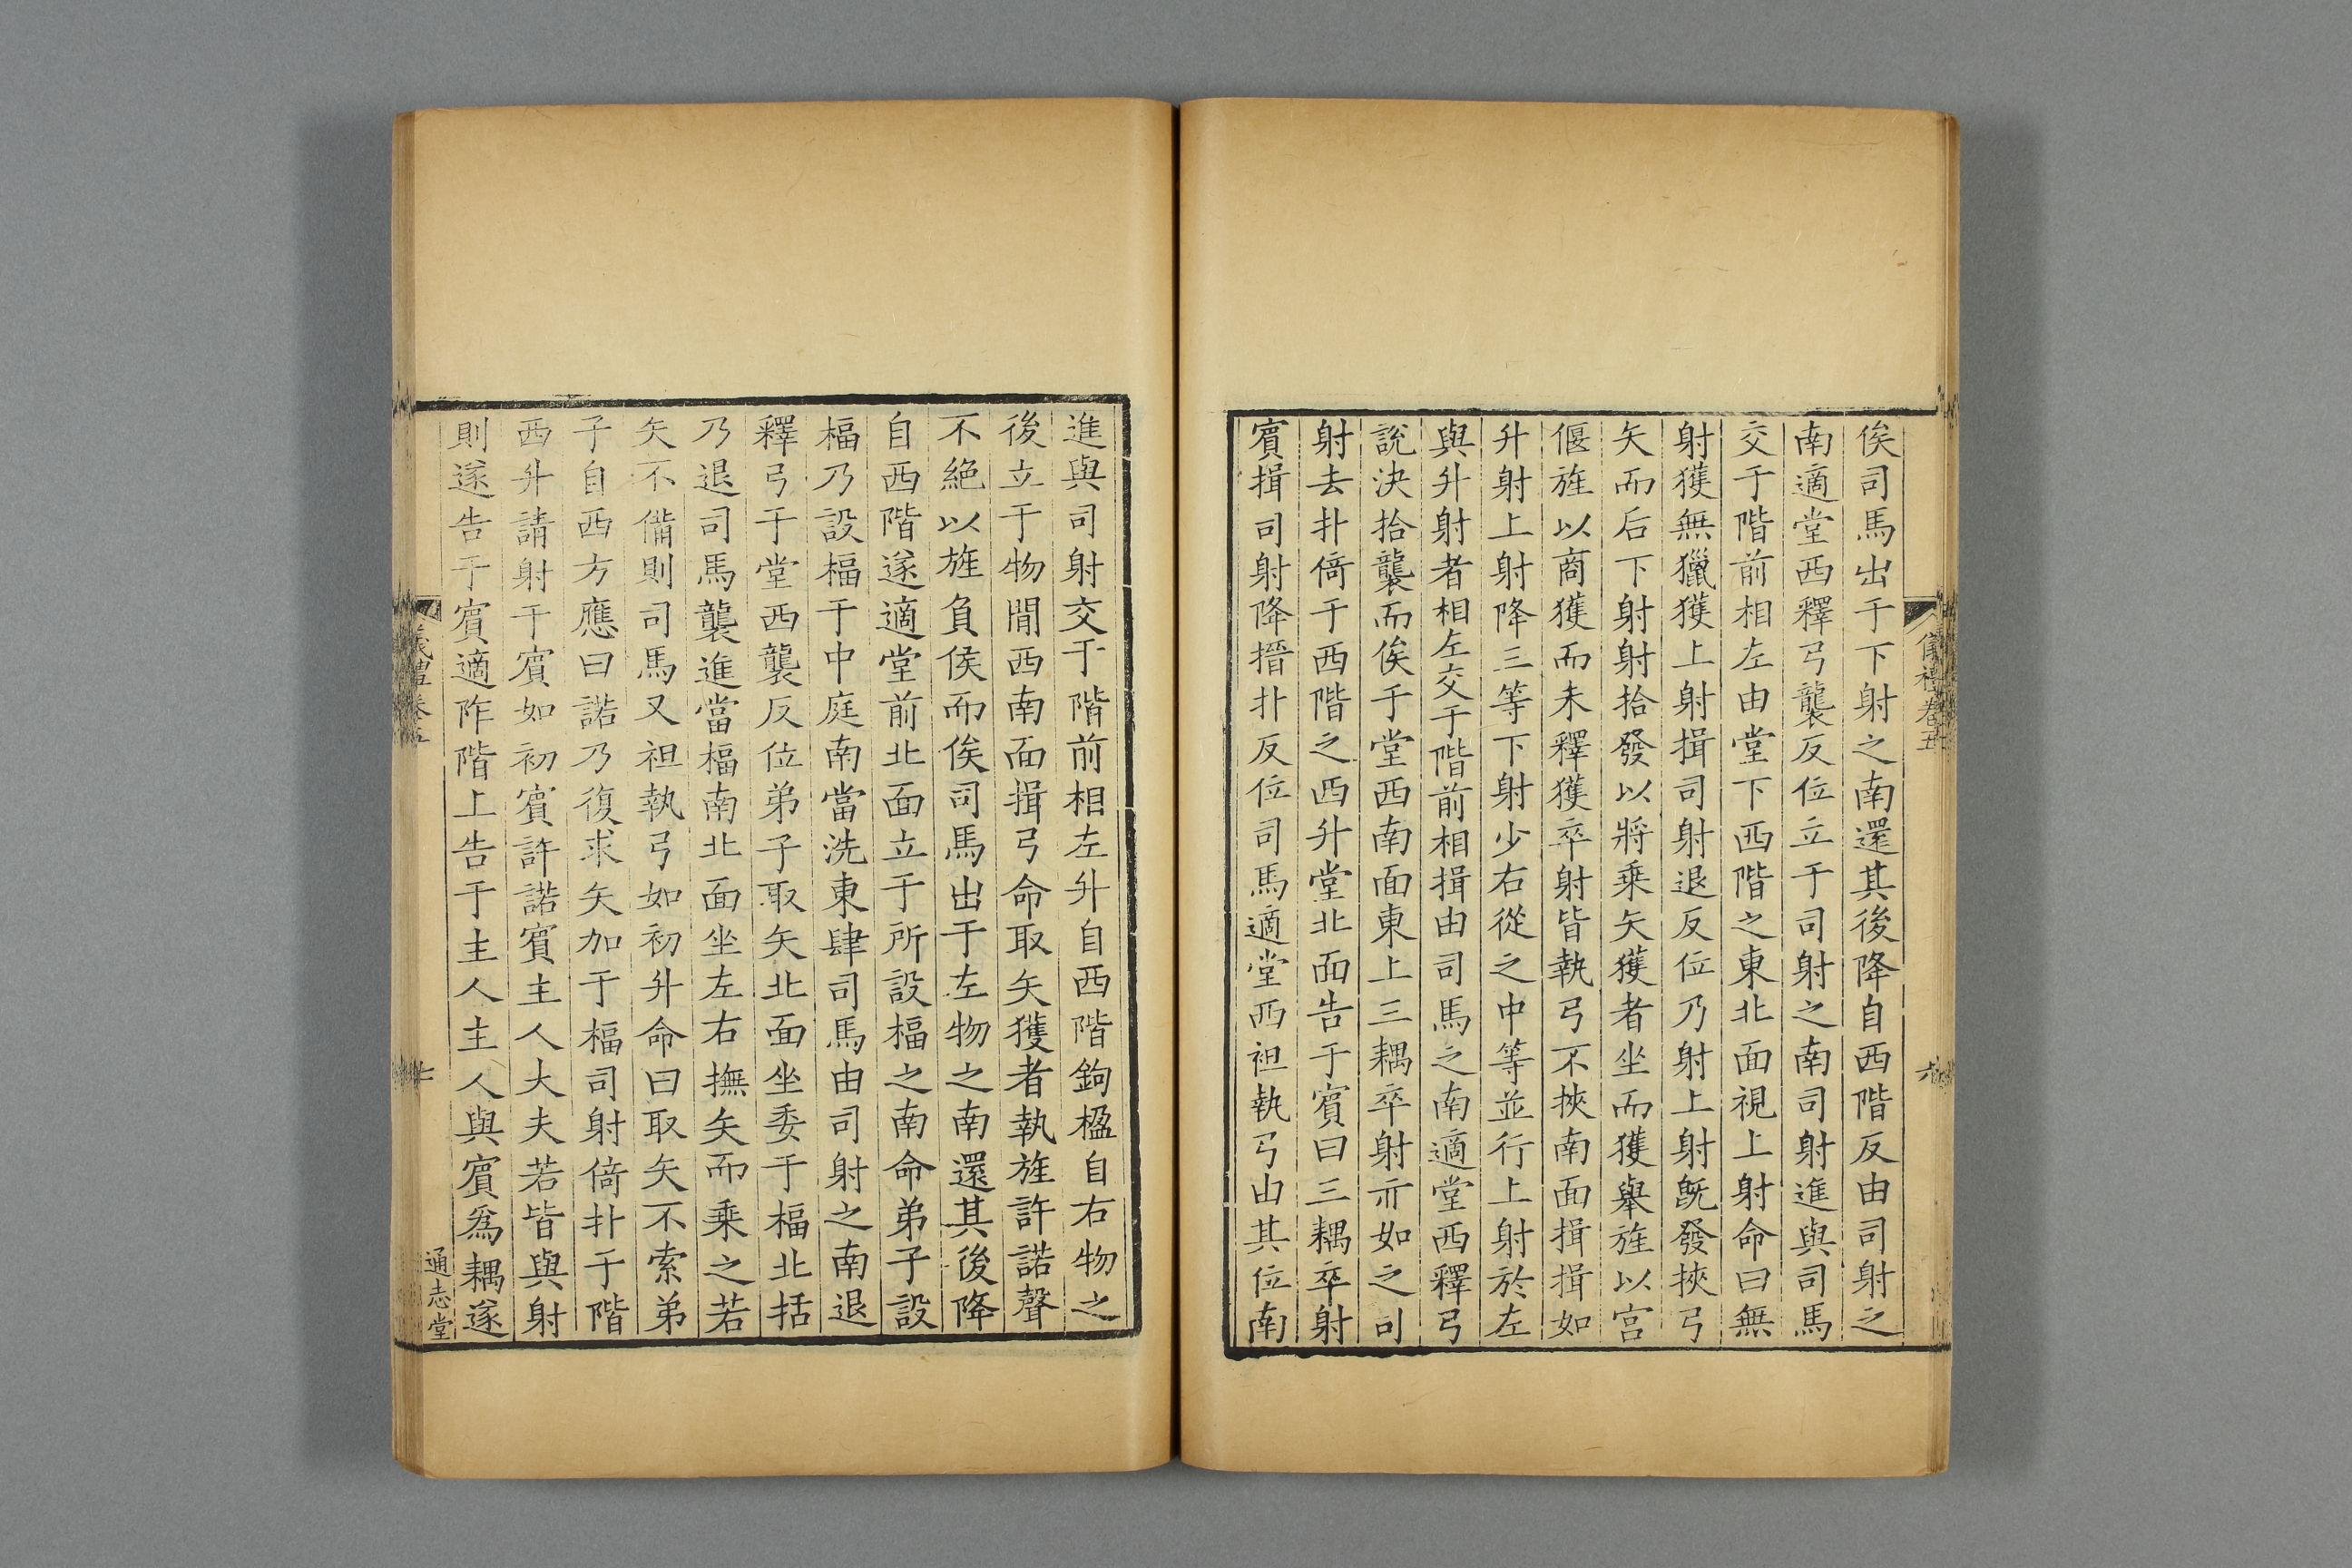 儀禮卷五
六
俟司馬出于下射之南還其後降自西階反由司射之
南適堂西釋弓襲反位立于司射之南司射進與司馬
交于階前相左由堂下西階之東北面視上射命曰無
射獲無獵獲上射揖司射退反位乃射上射旣發挾弓
矢而后下射射拾發以將乘矢獲者坐而獲舉旌以宮
偃旌以商獲而未釋獲卒射皆執弓不挾南面揖揖如
升射上射降三等下射少右從之中等並行上射於左
與升射者相左交于階前相揖由司馬之南適堂西釋弓
說決拾襲而俟于堂西南面東上三耦卒射亦如之司
射去扑倚于西階之西升堂北面告于賓曰三耦卒射
賓揖司射降搢扑反位司馬適堂西袒執弓由其位南
進與司射交于階前相左升自西階鉤楹自右物之
後立于物閒西南面揖弓命取矢獲者執旌許諾聲
不絕以旌負侯而俟司馬出于左物之南還其後降
自西階遂適堂前北面立于所設楅之南命弟子設
楅乃設楅于中庭南當洗東肆司馬由司射之南退
釋弓于堂西襲反位弟子取矢北面坐委于楅北括
乃退司馬襲進當楅南北面坐左右撫矢而乘之若
矢不備則司馬又袒執弓如初升命曰取矢不索弟
子自西方應曰諾乃復求矢加于楅司射倚扑于階
西升請射于賓如初賓許諾賓主人大夫若皆與射
則遂告于賓適阼階上告于主人主人與賓爲耦遂
通志堂